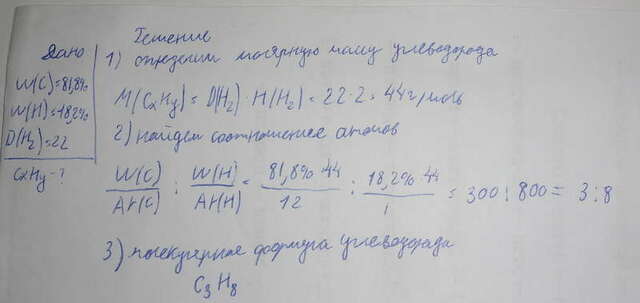 Решение
Дано
W(C)=81,8%
W(H)=18,2%
D(H₂)=22
CxHy-?
1) определим молярную массу углеводорода
M(CxHy) = D(H₂)·M(H₂) = 22·2 = 44 г/моль
2) найдем соотношение атомов
W(C)/Ar(C) : W(H)/Ar(H) = 81,8%·44/12 : 18,2%·44/1 = 300 : 800 = 3:8
3) молекулярная формула углеводорода
C₃H₈